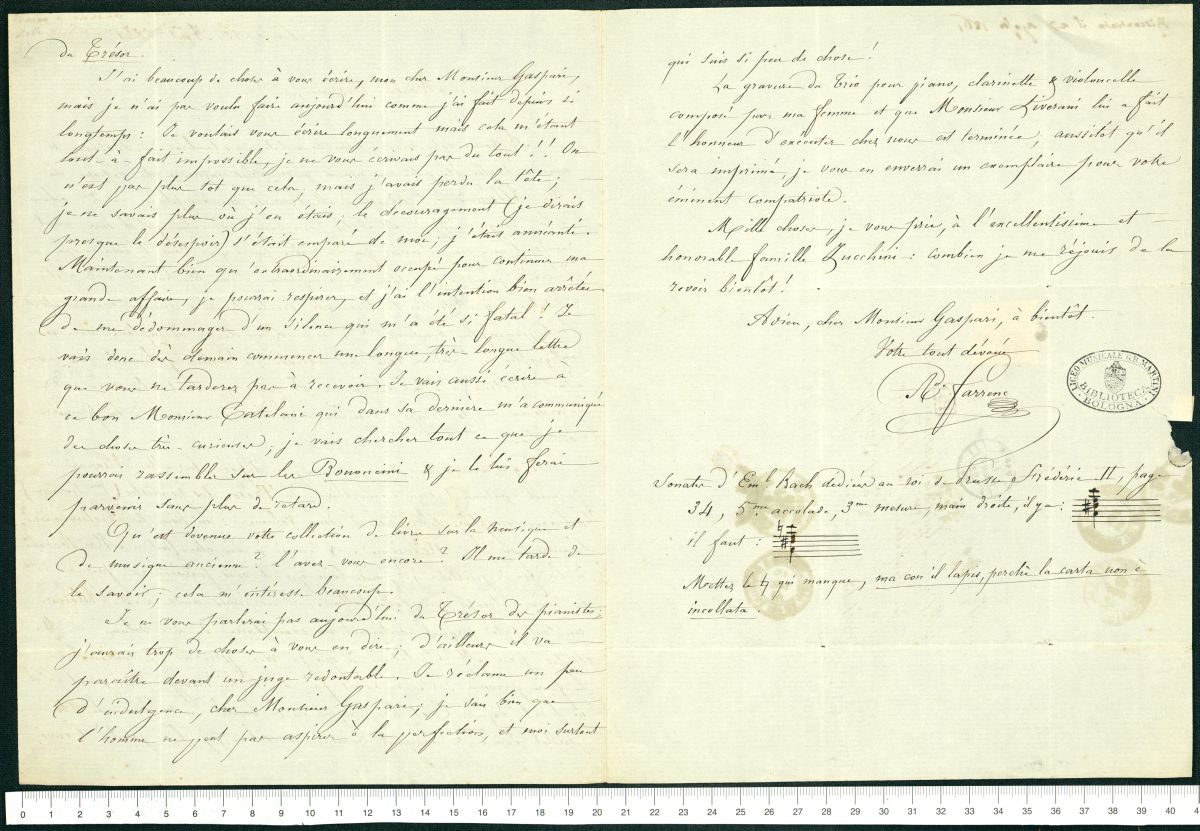 du Trésor.
J'ai beaucoup de choses à vous écrire, mon cher Monsieur Gaspari,
mais je n'ai pas voulu faire aujourd'hui comme j'ai fait depuis si
longtemps : Je voulais vous écrire longuement mais cela m'étant
tout-à-fait impossible, je ne vous écrivais pas du tout !! On
n'est pas plus sot que cela, mais j'avais perdu la tête ;
je ne savais plus où j'en étais ; le découragement (je dirais
presque le désespoir) s'était emparé de moi ; j'étais anéanti.
Maintenant bien qu'extraordinairement occupé pour continuer ma
grande affaire, je pourrai respirer, et j'ai l'intention bien arrêtée
de me dédommager d'un silence qui m'a été si fatal ! Je
vais donc dès demain commencer une longue, très-longue lettre
que vous ne tarderez pas à recevoir. Je vais aussi écrire à
ce bon Monsieur Catelani qui dans sa dernière m'a communiqué
des choses très-curieuses ; je vais chercher tout ce que je
pourrai rassembler sur les Bononcini & je le lui ferai
parvenir sans plus de retard.
Qu'est devenue votre collection de livres sur la musique et
de musique ancienne ? l'avez-vous encore ? Il me tarde de
le savoir ; cela m'intéresse beaucoup.
Je ne vous parlerai pas aujourd'hui du Trésor des pianistes ;
j'aurais trop de choses à vous en dire ; d'ailleurs il va
paraître devant un juge redoutable. Je réclame un peu
d'indulgence, cher Monsieur Gaspari ; je sais bien que
l'homme ne peut pas aspirer à la perfection, et moi surtout
qui suis si peu de chose !
La gravure du Trio pour piano, clarinette & violoncelle
composé par ma femme et que Monsieur Liverani lui a fait
l'honneur d'exécuter chez nous est terminée ; aussitôt qu'il
sera imprimé, je vous en enverrai un exemplaire pour votre
éminent compatriote.
Mille choses, je vous prie, à l'excellentissime et
honorable famille Zucchini : combien je me réjouis de la
revoir bientôt !
Adieu, cher Monsieur Gaspari, à bientôt.
Votre tout dévoué
A. Farrenc
LICEO MUSICALE G.B. MARTINI
BIBLIOTECA
BOLOGNA
Sonates d'Em. Bach dédiées au roi de Prusse Frédéric II, page
34, 5me accolade, 3me mesure, main droite, il y a :
il faut :
Mettez le ♮ qui manque, ma con il lapis, perchè la carta non è
incollata.
0 1 2 3 4 5 6 7 8 9 10 11 12 13 14 15 16 17 18 19 20 21 22 23 24 25 26 27 28 29 30 31 32 33 34 35 36 37 38 39 40